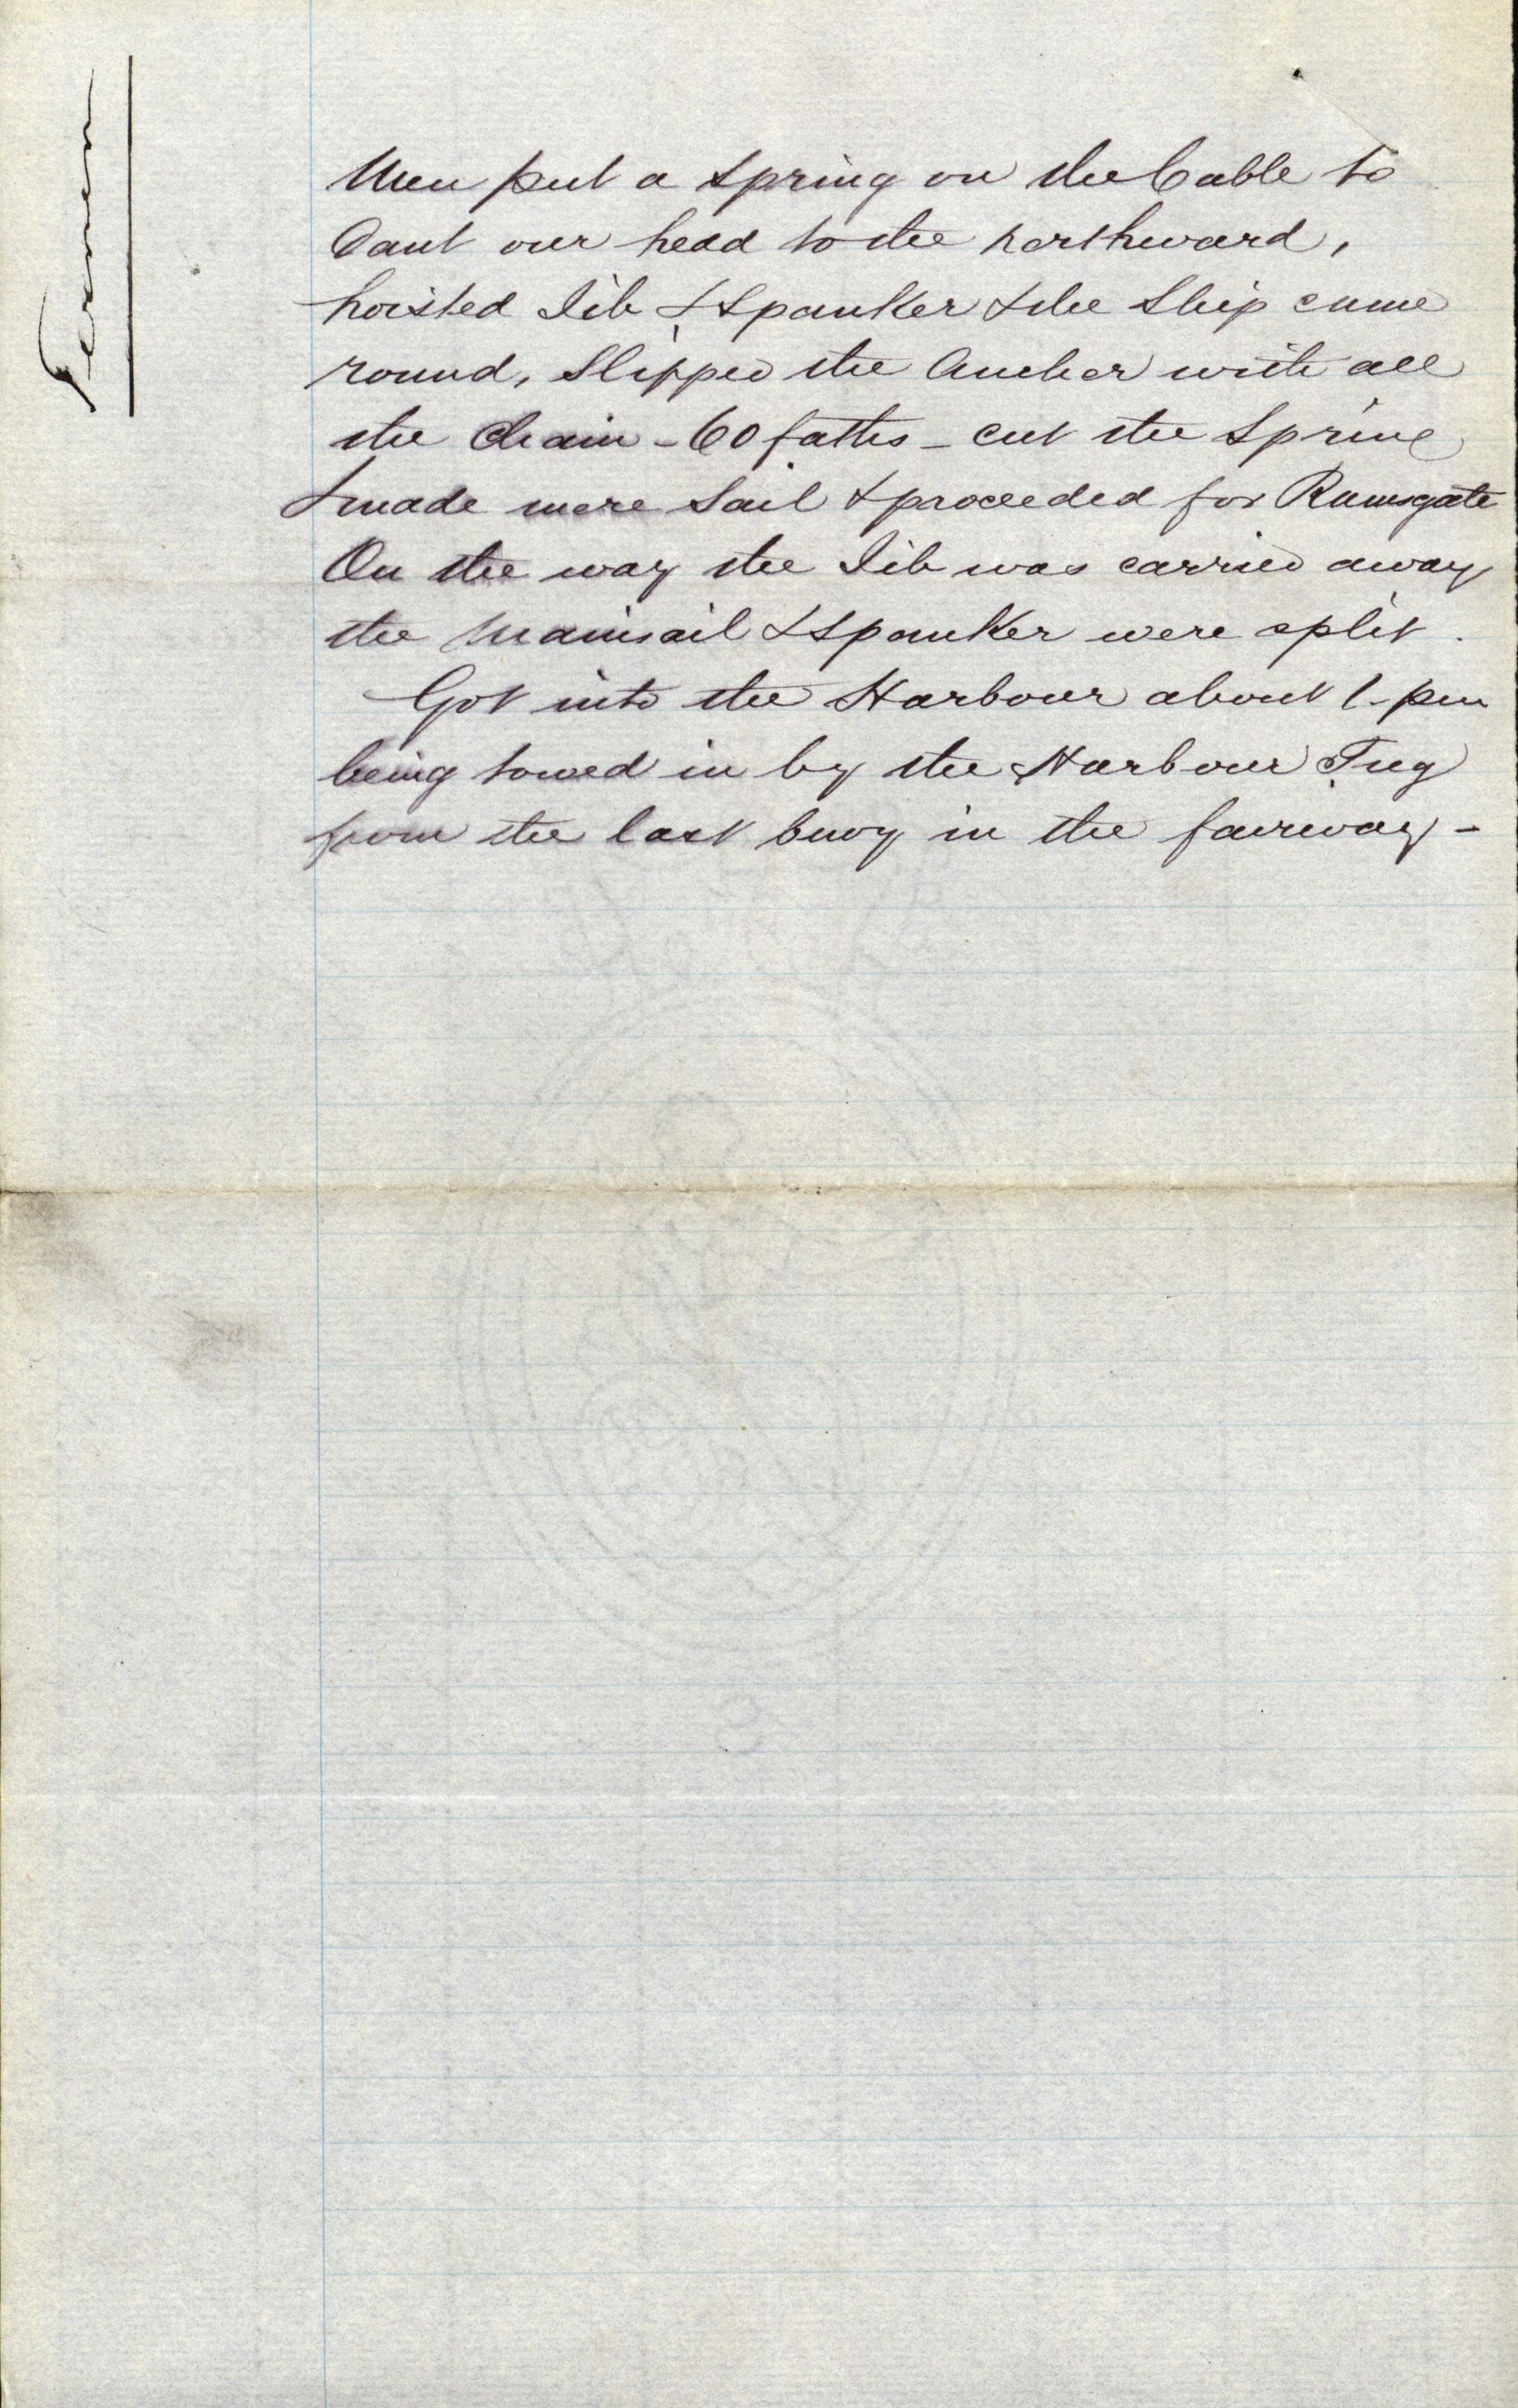 Men put a Spring on the Cable to
Cant our head to the northward,
hoisted Jib & Spanker & the Ship came
round, Slipped the Anchor with all
the Chain - 60 faths - cut the Spring
& made more Sail & proceeded for Ramsgate
On the way the Jib was carried away
the Mainsail & Spanker were split.
Got into the Harbour about 1 - pm
being towed in by the Harbour Tug
from the last buoy in the fairway -